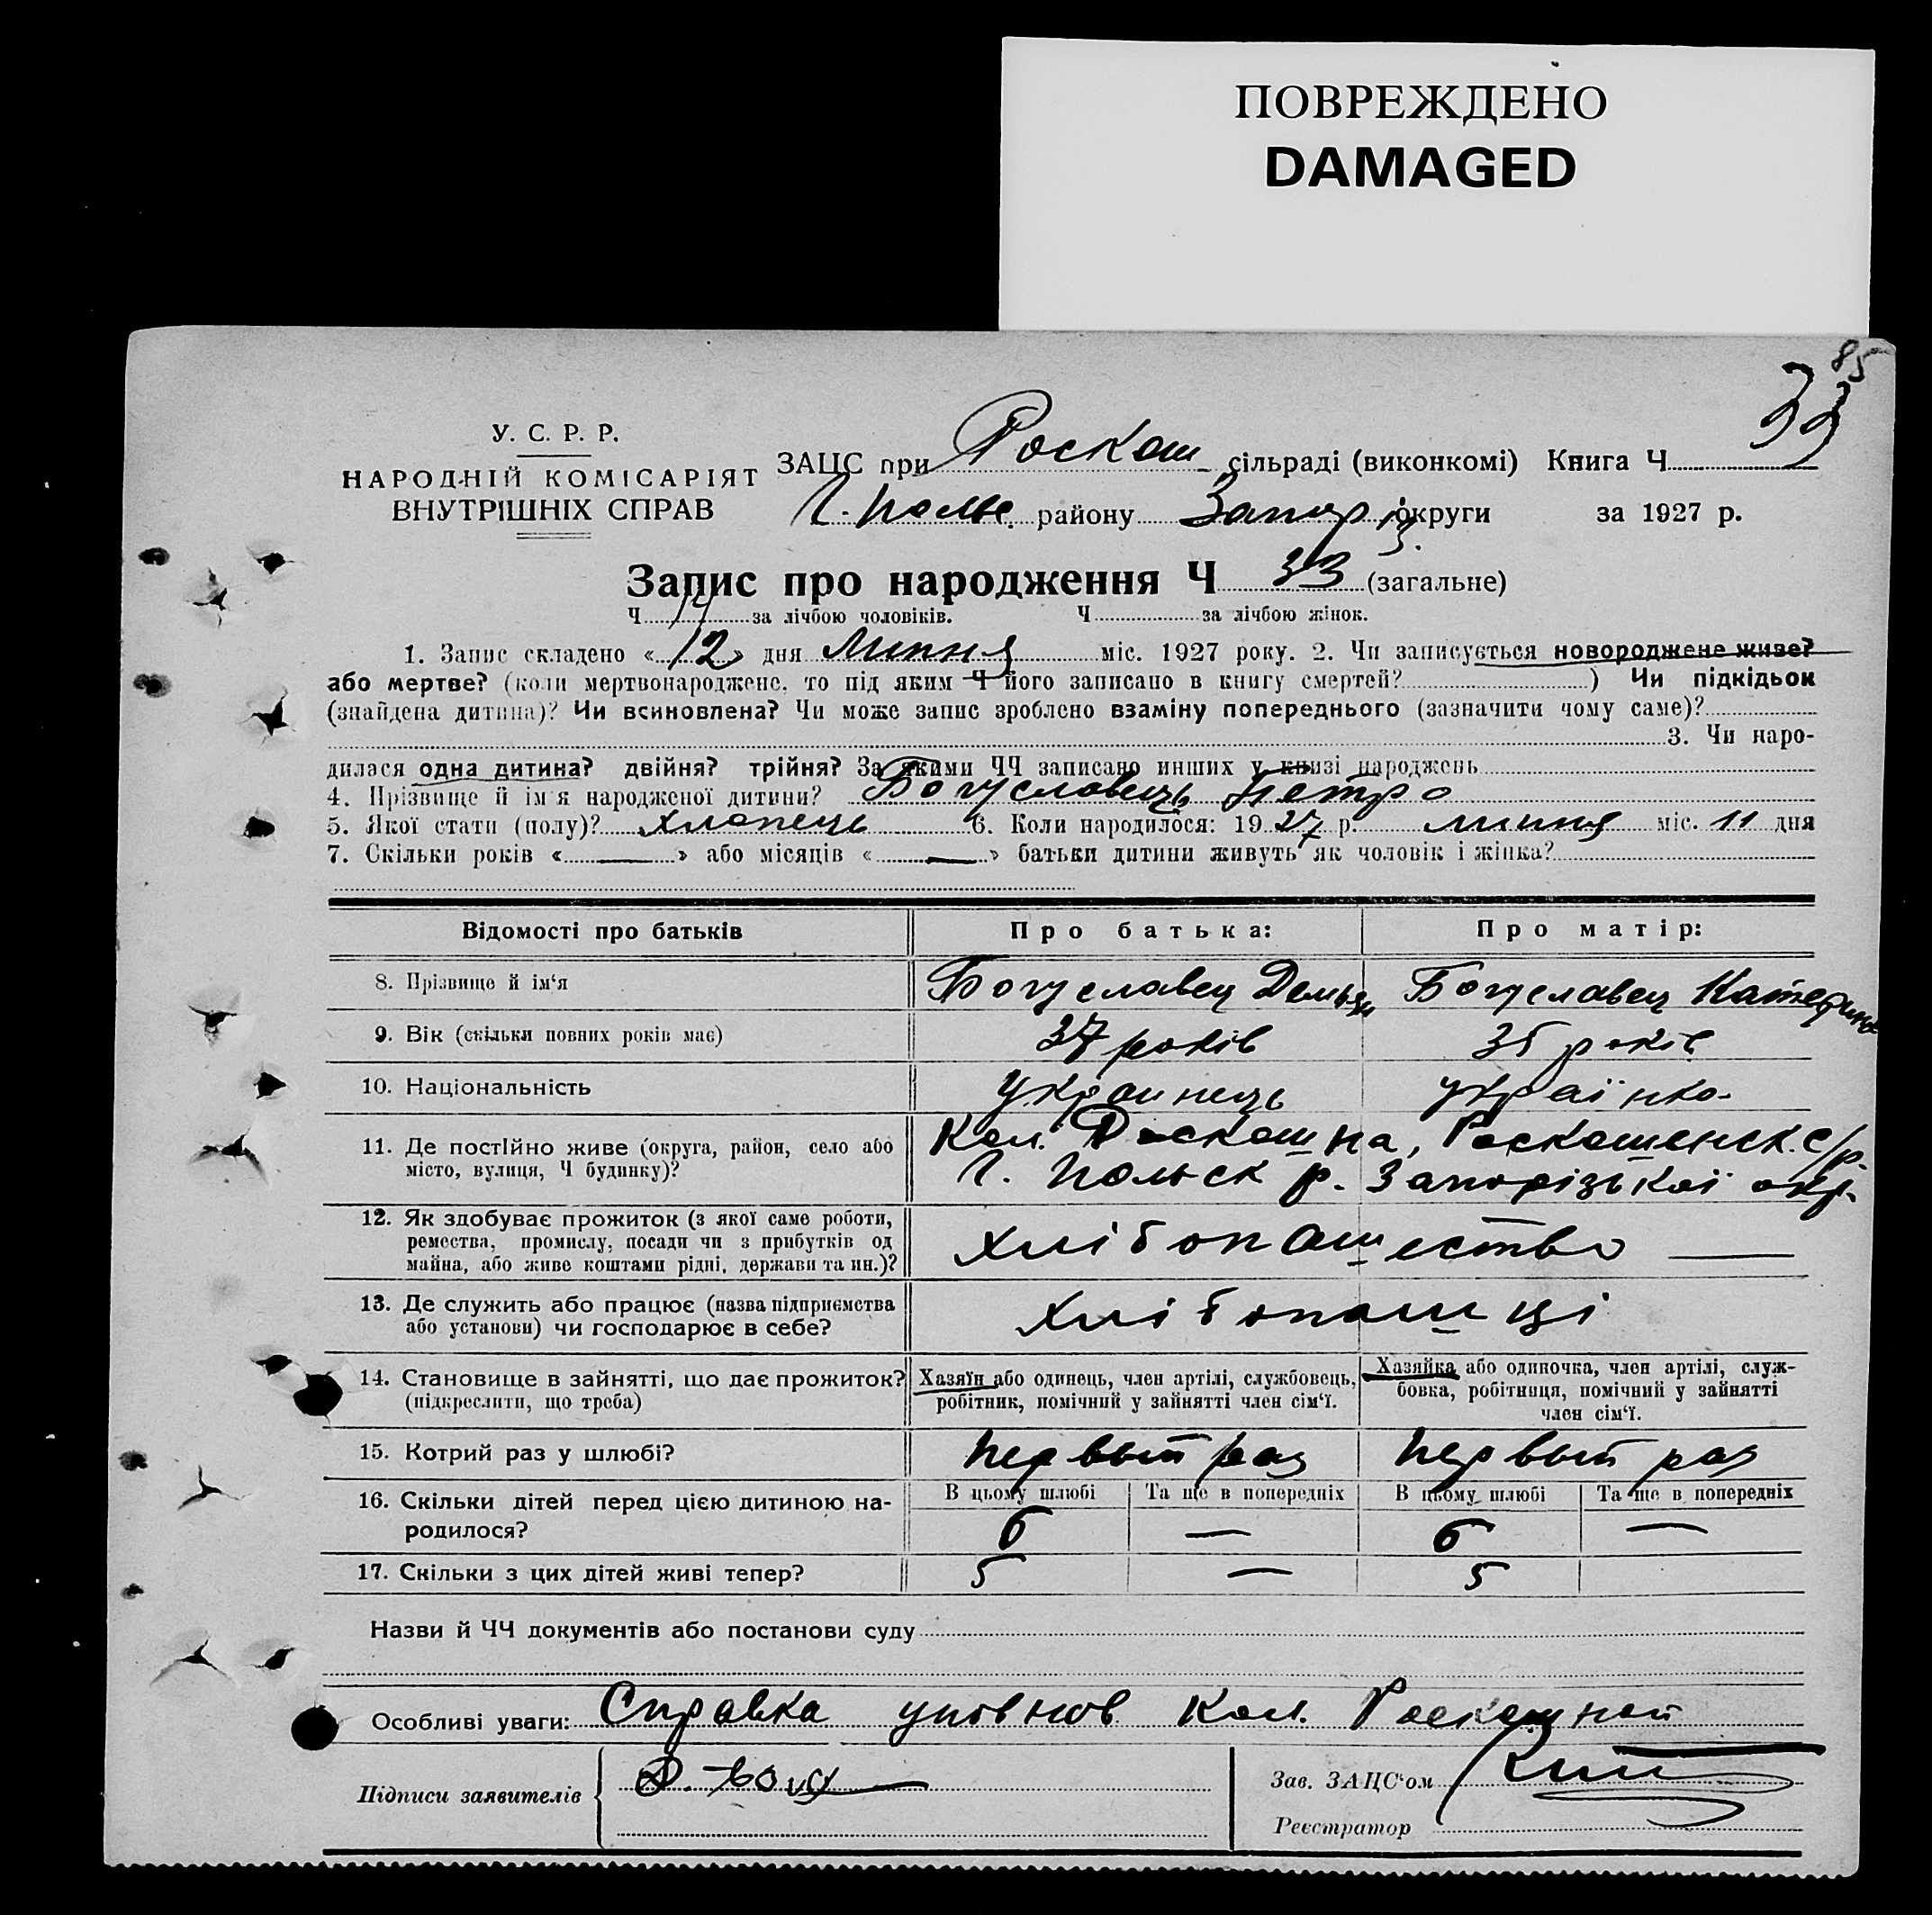 ПОВРЕЖДЕНО
DAMAGED
85
33
У. С. Р. Р.
НАРОДНІЙ КОМІСАРІЯТ
ВНУТРІШНІХ СПРАВ
ЗАЦС при Роскош сільраді (виконкомі) Книга Ч
Г. Полье. району Запоріз. округи за 1927 р.
Запис про народження Ч 33 (загальне)
Ч 17 за лічбою чоловіків. Ч за лічбою жінок.
1. Запис складено « 12 » дня Липня міс. 1927 року. 2. Чи записується новороджене живе?
або мертве? (коли мертвонароджене, то під яким Ч його записано в книгу смертей? ) Чи підкідьок
(знайдена дитина)? Чи всиновлена? Чи може запис зроблено взаміну попереднього (зазначити чому саме)?
3. Чи наро-
дилася одна дитина? двійня? трійня? За якими ЧЧ записано инших у книзі народжень
4. Прізвище й ім'я народженої дитини? Богуславець Петро
5. Якої стати (полу)? Хлопець 6. Коли народилося: 1927 р. липня міс. 11 дня
7. Скільки років « — » або місяців « — » батьки дитини живуть як чоловік і жінка?
Відомості про батьків Про батька: Про матір:
8. Прізвище й ім'я Богуславец Демьян Богуславец Катерина
9. Вік (скільки повних років має) 37 років 35 років
10. Національність Украинець українка
11. Де постійно живе (округа, район, село або Кол. Роскошна, Роскошенск. с/р.
місто, вулиця, Ч будинку)? Г. Польск р. Запорізької окр.
12. Як здобуває прожиток (з якої саме роботи,
ремества, промислу, посади чи з прибутків од Хлібопашество —
майна, або живе коштами рідні, держави та ин.)?
13. Де служить або працює (назва підприємства Хлібопашці
або установи) чи господарює в себе?
14. Становище в зайнятті, що дає прожиток? Хазяїн або одинець, член артілі, службовець, Хазяйка або одиночка, член артілі, служ-
(підкреслити, що треба) робітник, помічний у зайнятті член сім'ї. бовка, робітниця, помічний у зайнятті
член сім'ї.
15. Котрий раз у шлюбі? первый раз первый раз
16. Скільки дітей перед цією дитиною на- В цьому шлюбі Та ще в попередніх В цьому шлюбі Та ще в попередніх
родилося? 6 — 6 —
17. Скільки з цих дітей живі тепер? 5 — 5
Назви й ЧЧ документів або постанови суду
Особливі уваги: Справка уповнов Кол. Роскошной
Підписи заявителів
Зав. ЗАЦС'ом
Реєстратор